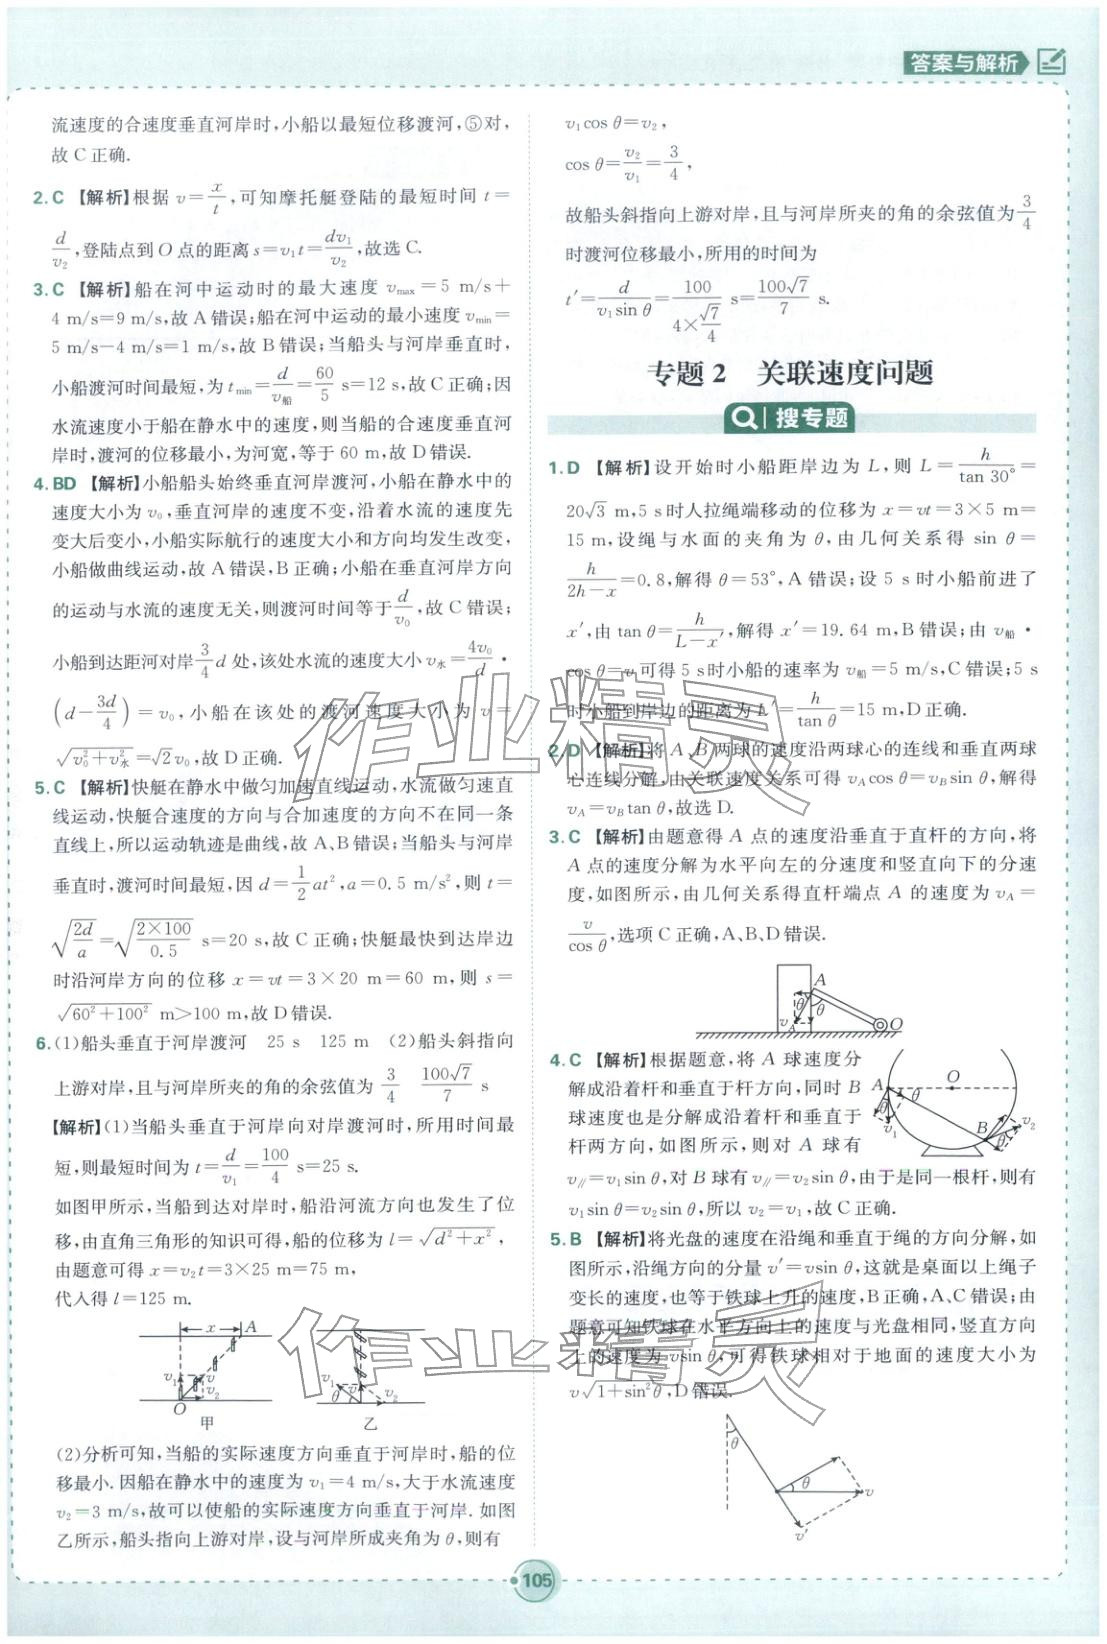 答案与解析
流速度的合速度垂直河岸时,小船以最短位移渡河,⑤对,
故 C 正确.
2. C 【解析】根据 v=x/t,可知摩托艇登陆的最短时间 t=
d/v₂,登陆点到 O 点的距离 s=v₁t=dv₁/v₂,故选 C.
3. C 【解析】船在河中运动时的最大速度 vmax=5 m/s+
4 m/s=9 m/s,故 A 错误;船在河中运动的最小速度 vmin=
5 m/s-4 m/s=1 m/s,故 B 错误;当船头与河岸垂直时,
小船渡河时间最短,为 tmin=d/v船=60/5 s=12 s,故 C 正确;因
水流速度小于船在静水中的速度,则当船的合速度垂直河
岸时,渡河的位移最小,为河宽,等于 60 m,故 D 错误.
4. BD 【解析】小船船头始终垂直河岸渡河,小船在静水中的
速度大小为 v₀,垂直河岸的速度不变,沿着水流的速度先
变大后变小,小船实际航行的速度大小和方向均发生改变,
小船做曲线运动,故 A 错误,B 正确;小船在垂直河岸方向
的运动与水流的速度无关,则渡河时间等于d/v₀,故 C 错误;
小船到达距河对岸3/4d 处,该处水流的速度大小 v水=4v₀/d·
(d-3d/4)=v₀,小船在该处的渡河速度大小为 v=
√(v₀²+v水²)=√2v₀,故 D 正确.
5. C 【解析】快艇在静水中做匀加速直线运动,水流做匀速直
线运动,快艇合速度的方向与合加速度的方向不在同一条
直线上,所以运动轨迹是曲线,故 A、B 错误;当船头与河岸
垂直时,渡河时间最短,因 d=1/2at²,a=0.5 m/s²,则 t=
√(2d/a)=√(2×100/0.5) s=20 s,故 C 正确;快艇最快到达岸边
时沿河岸方向的位移 x=vt=3×20 m=60 m,则 s=
√(60²+100²) m>100 m,故 D 错误.
6. (1)船头垂直于河岸渡河 25 s 125 m (2)船头斜指向
上游对岸,且与河岸所夹的角的余弦值为3/4 100√7/7 s
【解析】(1)当船头垂直于河岸向对岸渡河时,所用时间最
短,则最短时间为 t=d/v₁=100/4 s=25 s.
如图甲所示,当船到达对岸时,船沿河流方向也发生了位
移,由直角三角形的知识可得,船的位移为 l=√(d²+x²),
由题意可得 x=v₂t=3×25 m=75 m,
代入得 l=125 m.
x A
v₁ v v₂ O
甲
v₁ v v₂ θ
乙
(2)分析可知,当船的实际速度方向垂直于河岸时,船的位
移最小.因船在静水中的速度为 v₁=4 m/s,大于水流速度
v₂=3 m/s,故可以使船的实际速度方向垂直于河岸.如图
乙所示,船头指向上游对岸,设与河岸所成夹角为 θ,则有
v₁cos θ=v₂,
cos θ=v₂/v₁=3/4,
故船头斜指向上游对岸,且与河岸所夹的角的余弦值为3/4
时渡河位移最小,所用的时间为
t′=d/(v₁sin θ)=100/(4×√7/4) s=100√7/7 s.
专题 2 关联速度问题
搜专题
1. D 【解析】设开始时小船距岸边为 L,则 L=h/tan 30°=
20√3 m,5 s时人拉绳端移动的位移为 x=vt=3×5 m=
15 m,设绳与水面的夹角为 θ,由几何关系得 sin θ=
h/(2h-x)=0.8,解得 θ=53°,A 错误;设 5 s 时小船前进了
x′,由 tan θ=h/(L-x′),解得 x′=19.64 m,B 错误;由 v船·
cos θ=v 可得 5 s时小船的速率为 v船=5 m/s,C 错误;5 s
时小船到岸边的距离为 L′=h/tan θ=15 m,D 正确.
2. D 【解析】将 A、B 两球的速度沿两球心的连线和垂直两球
心连线分解,由关联速度关系可得 vAcos θ=vBsin θ,解得
vA=vBtan θ,故选 D.
3. C 【解析】由题意得 A 点的速度沿垂直于直杆的方向,将
A 点的速度分解为水平向左的分速度和竖直向下的分速
度,如图所示,由几何关系得直杆端点 A 的速度为 vA=
v/cos θ,选项 C 正确,A、B、D 错误.
A θ θ vA O
4. C 【解析】根据题意,将 A 球速度分
解成沿着杆和垂直于杆方向,同时 B
球速度也是分解成沿着杆和垂直于
杆两方向,如图所示,则对 A 球有
v∥=v₁sin θ,对 B 球有 v∥=v₂sin θ,由于是同一根杆,则有
v₁sin θ=v₂sin θ,所以 v₂=v₁,故 C 正确.
A O θ θ v₁ B v₂
5. B 【解析】将光盘的速度在沿绳和垂直于绳的方向分解,如
图所示,沿绳方向的分量 v′=vsin θ,这就是桌面以上绳子
变长的速度,也等于铁球上升的速度,B 正确,A、C 错误;由
题意可知铁球在水平方向上的速度与光盘相同,竖直方向
上的速度为 vsin θ,可得铁球相对于地面的速度大小为
v√(1+sin²θ),D 错误.
θ θ v v′
作业精灵
作业精灵
105